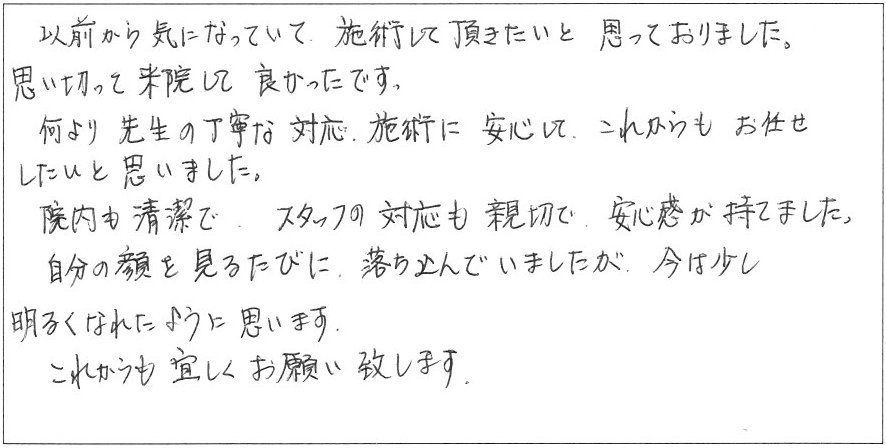 以前から気になっていて、施術して頂きたいと思っておりました。
思い切って来院して良かったです。
何より先生の丁寧な対応、施術に安心して、これからもお任せ
したいと思いました。
院内も清潔で、スタッフの対応も親切で、安心感が持てました。
自分の顔を見るたびに、落ち込んでいましたが、今は少し
明るくなれたように思います。
これからも宜しくお願い致します。